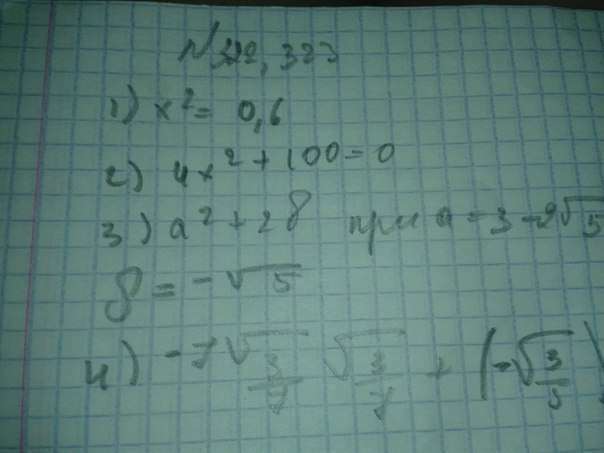 N 322, 323
1) x² = 0,6
2) 4x² + 100 = 0
3) a² + 2б при a = 3 - 2√5
б = -√5
4) -7√(3/7) √(3/7) + (-√(3/5)